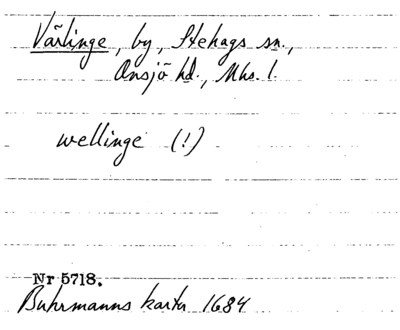 Värlinge, by, Stehags sn.,
Onsjö hd., Mhs. l.
wellinge (!)
Nr 5718.
Buhrmanns karta 1684